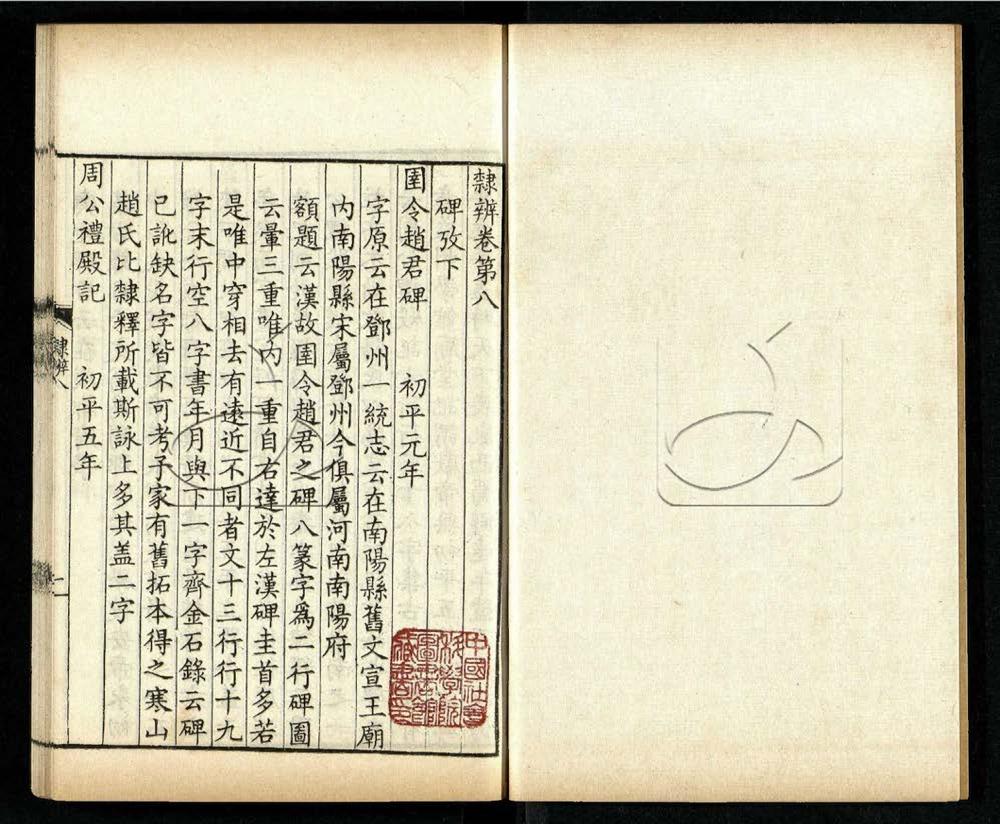 隸辨卷第八
碑攷下
圉令趙君碑 初平元年
字原云在鄧州一統志云在南陽縣舊文宣王廟
內南陽縣宋屬鄧州今俱屬河南南陽府
額題云漢故圉令趙君之碑八篆字爲二行碑圖
云暈三重唯內一重自右達於左漢碑圭首多若
是唯中穿相去有遠近不同者文十三行行十九
字末行空八字書年月與下一字齊金石錄云碑
已訛缺名字皆不可考予家有舊拓本得之寒山
趙氏比隸釋所載斯詠上多其盖二字
周公禮殿記 初平五年
隸辨八
一
中國社會
科學院
圖書館
藏書印